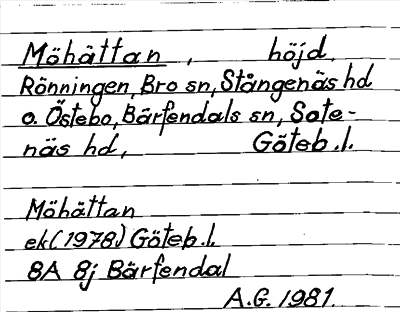 Möhättan, höjd,
Rönningen, Bro sn, Stångenäs hd
o. Östebo, Bärfendals sn, Sote-
näs hd, Göteb. l.
Möhättan
ek (1978) Göteb. l.
8A 8j Bärfendal
A.G. 1981